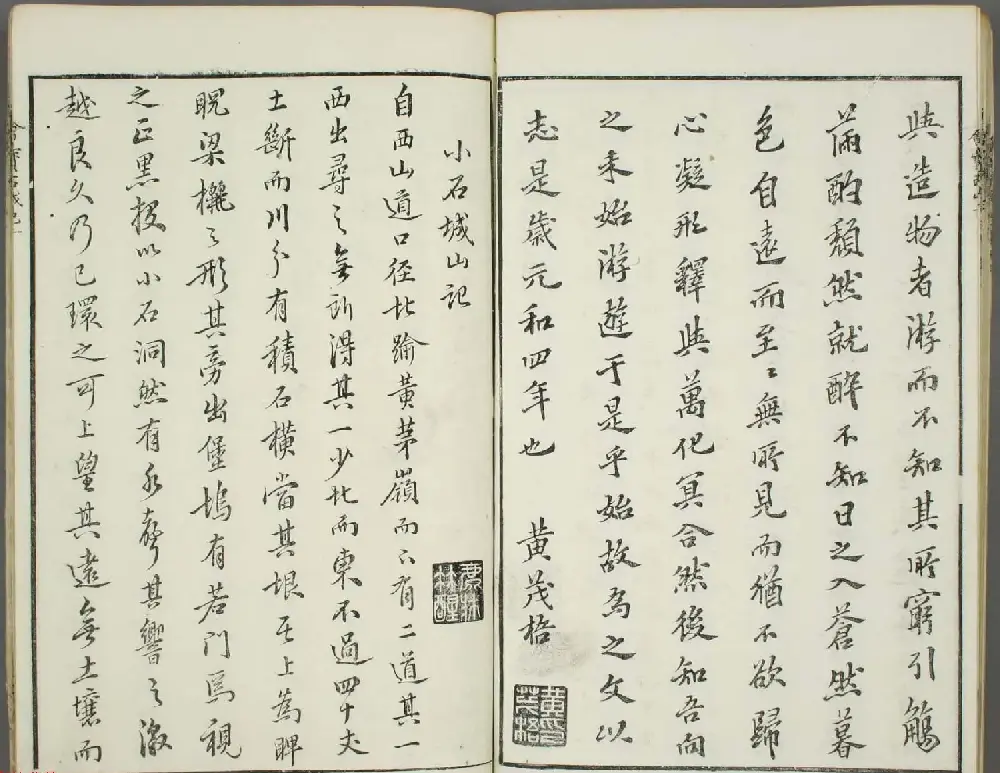 與造物者游而不知其所窮引觴
滿酌頹然就醉不知日之入蒼然暮
色自遠而至〻無所見而猶不欲歸
心凝形釋與萬化冥合然後知吾向
之未始游遊于是乎始故為之文以
志是歲元和四年也 黃茂梧
黃印茂梧
小石城山記
自西山道口徑北踰黃茅嶺而下有二道其一
西出尋之無所得其一少北而東不過四十丈
土斷而川分有積石橫當其垠其上為睥
睨梁欐之形其旁出堡塢有若門焉視
之正黑投以小石洞然有水聲其響之激
越良久乃已環之可上望其遠無土壤而